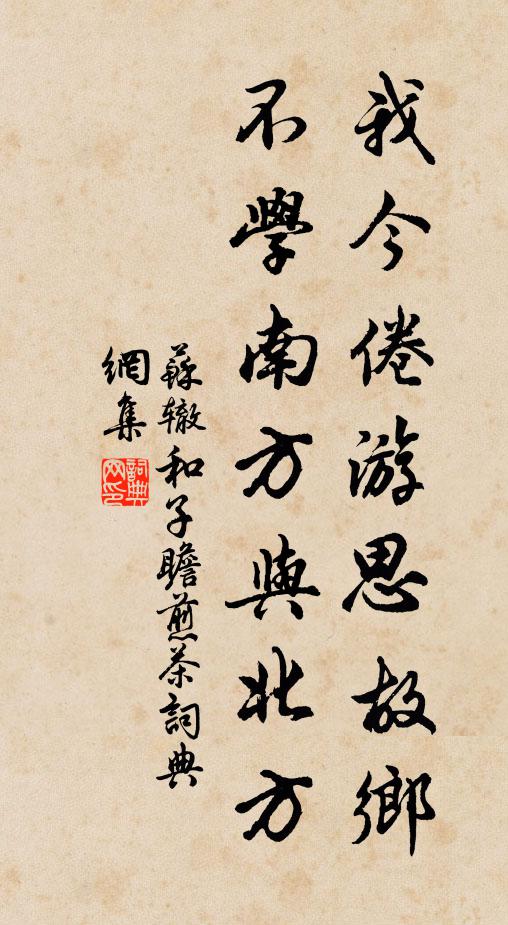 我今倦游思故鄉
不學南方與北方
蘇辙和子瞻煎茶詞典
網集
詞典网印